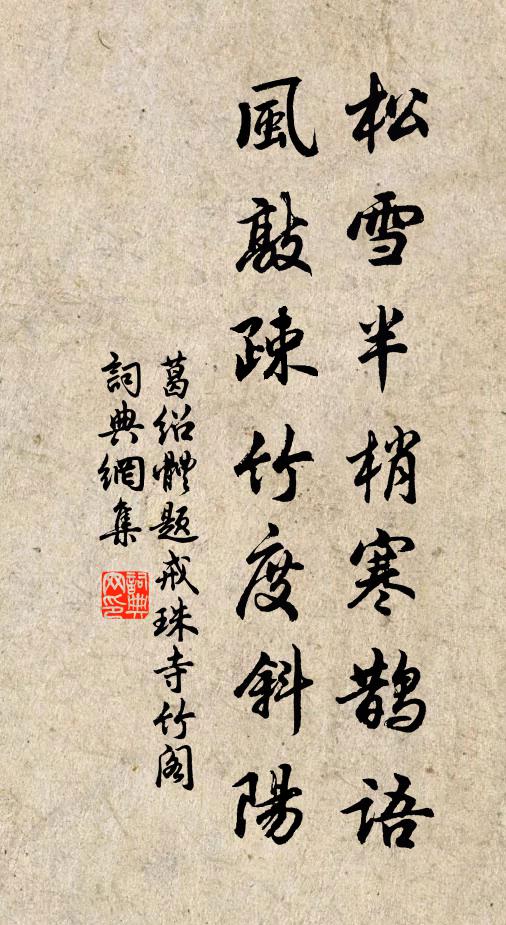 松雪半梢寒鵲語
風敲疎竹度斜陽
葛紹體題戒珠寺竹阁
詞典網集
詞典网印